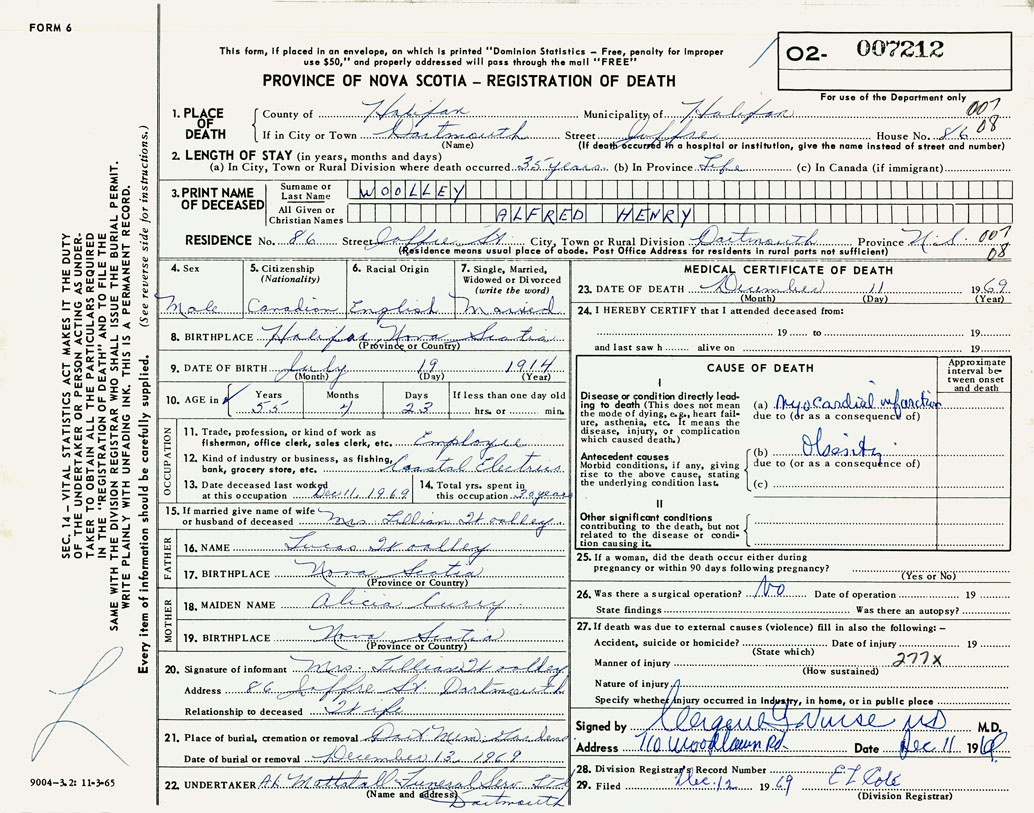 FORM 6
This form, if placed in an envelope, on which is printed "Dominion Statistics – Free, penalty for improper
use $50," and properly addressed will pass through the mail "FREE"
O2- 007212
For use of the Department only
PROVINCE OF NOVA SCOTIA – REGISTRATION OF DEATH
1. PLACE OF DEATH
County of Halifax Municipality of Halifax 007
If in City or Town Dartmouth Street Joffre House No. 86 08
(Name) (If death occurred in a hospital or institution, give the name instead of street and number)
2. LENGTH OF STAY (in years, months and days)
(a) In City, Town or Rural Division where death occurred 35 years (b) In Province Life (c) In Canada (if immigrant)
3. PRINT NAME OF DECEASED
Surname or Last Name WOOLLEY
All Given or Christian Names ALFRED HENRY
RESIDENCE No. 86 Street Joffre St. City, Town or Rural Division Dartmouth Province N.S. 007
(Residence means usual place of abode. Post Office Address for residents in rural parts not sufficient) 08
4. Sex Male
5. Citizenship (Nationality) Canadian
6. Racial Origin English
7. Single, Married, Widowed or Divorced (write the word) Married
8. BIRTHPLACE Halifax, Nova Scotia
(Province or Country)
9. DATE OF BIRTH July 19 1914
(Month) (Day) (Year)
10. AGE in Years 55 Months 4 Days 23 If less than one day old hrs. or min.
OCCUPATION
11. Trade, profession, or kind of work as
fisherman, office clerk, sales clerk, etc. Employee
12. Kind of industry or business, as fishing,
bank, grocery store, etc. Coastal Electric
13. Date deceased last worked
at this occupation Dec 11, 1969
14. Total yrs. spent in
this occupation 30 years
15. If married give name of wife
or husband of deceased Mrs. Lillian Woolley
FATHER
16. NAME Lucas Woolley
17. BIRTHPLACE Nova Scotia
(Province or Country)
MOTHER
18. MAIDEN NAME Alicia Curry
19. BIRTHPLACE Nova Scotia
(Province or Country)
20. Signature of informant Mrs. Lillian Woolley
Address 86 Joffre St. Dartmouth
Relationship to deceased Wife
21. Place of burial, cremation or removal Dart Mem. Gardens
Date of burial or removal December 13, 1969
22. UNDERTAKER Funeral Serv. Ltd
(Name and address) Dartmouth
MEDICAL CERTIFICATE OF DEATH
23. DATE OF DEATH December 11 1969
(Month) (Day) (Year)
24. I HEREBY CERTIFY that I attended deceased from:
19 to 19
and last saw h alive on 19
CAUSE OF DEATH
Approximate interval between onset and death
I
Disease or condition directly leading
to death (This does not
mean the mode of dying, e.g., heart failure,
asthenia, etc. It means the
disease, injury, or complication
which caused death.)
(a) Myocardial infarction
due to (or as a consequence of)
Antecedent causes
Morbid conditions, if any, giving
rise to the above cause, stating
the underlying condition last.
(b) Obesity
due to (or as a consequence of)
(c)
II
Other significant conditions
contributing to the death, but not
related to the disease or condition
causing it.
25. If a woman, did the death occur either during
pregnancy or within 90 days following pregnancy?
(Yes or No)
26. Was there a surgical operation? No Date of operation 19
State findings Was there an autopsy?
27. If death was due to external causes (violence) fill in also the following: –
Accident, suicide or homicide? Date of injury 19
(State which)
Manner of injury 277X
(How sustained)
Nature of injury
Specify whether injury occurred in Industry, in home, or in public place
Signed by Nurse MD M.D.
Address 110 Woodlawn Rd. Date Dec 11 1969
28. Division Registrar's Record Number
29. Filed Dec. 12 1969 Cole
(Division Registrar)
SEC. 14 – VITAL STATISTICS ACT MAKES IT THE DUTY
OF THE UNDERTAKER OR PERSON ACTING AS UNDER-
TAKER TO OBTAIN ALL THE PARTICULARS REQUIRED
IN THE "REGISTRATION OF DEATH" AND TO FILE THE
SAME WITH THE DIVISION REGISTRAR WHO SHALL ISSUE THE BURIAL PERMIT.
WRITE PLAINLY WITH UNFADING INK. THIS IS A PERMANENT RECORD.
Every item of information should be carefully supplied. (See reverse side for instructions.)
9004–3.2: 11-3-65